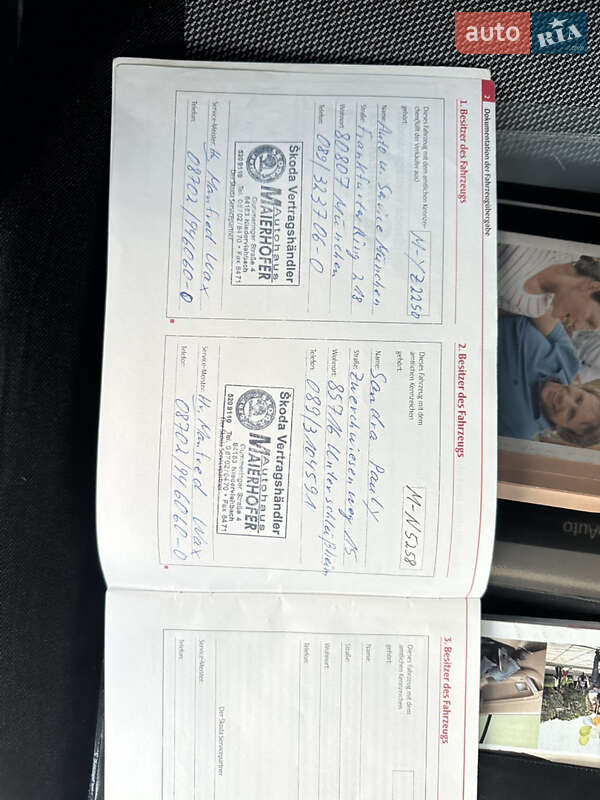 auto RIA.com
2 Dokumentation der Fahrzeugübergabe
1. Besitzer des Fahrzeugs
Dieses Fahrzeug mit dem amtlichen Kennzei-
chen(füllt der Verkäufer aus)
M-YZ2250
gehört:
Name: Auto u. Service München
Straße: Frankfurter Ring 218
Wohnort: 80807 München
Telefon: 089/323706-0
Škoda Vertragshändler
Autohaus
MAIERHOFER
Gummeringer Straße 4
84183 Niederviehbach
5209110 Tel. 08702/8470 + Fax 8471
Der Škoda Servicepartner
Service-Meister: H. Manfred Wax
Telefon: 08702/946060-0
2. Besitzer des Fahrzeugs
Dieses Fahrzeug mit dem
amtlichen Kennzeichen
M-N5258
gehört:
Name: Sandra Pauty
Straße: Zwerchwiesenweg 15
Wohnort: 85716 Unterschleißheim
Telefon: 089/3104591
Škoda Vertragshändler
Autohaus
MAIERHOFER
Gummeringer Straße 4
84183 Niederviehbach
5209110 Tel. 08702/8470 + Fax 8471
Der Škoda Servicepartner
Service-Meister: Hr. Manfred Wax
Telefon: 08702/946060-0
3. Besitzer des Fahrzeugs
Dieses Fahrzeug mit dem
amtlichen Kennzeichen
gehört:
Name:
Straße:
Wohnort:
Telefon:
Der Škoda Servicepartner
Service-Meister:
Telefon:
Auto